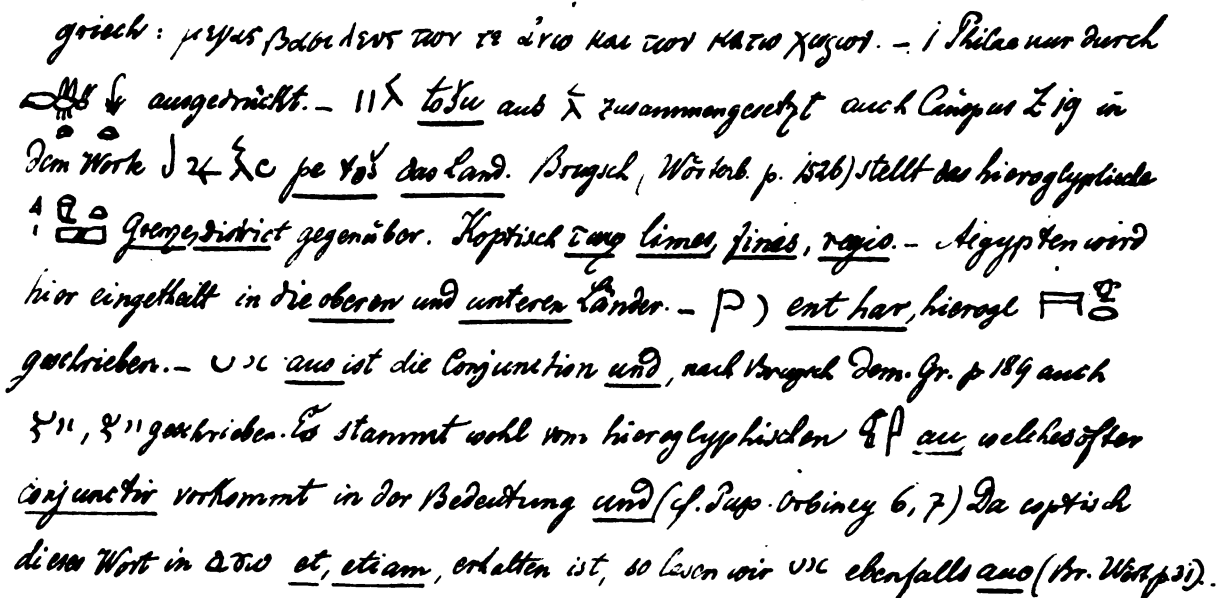 griech: μεγας βασιλευς των τε άνω και των κατω χωρων. – i Philae nur durch
ausgedrückt. – tošu aus zusammengesetzt auch Canopus Z 19 in
dem Worte pe toš das Land. Brugsch, Wörterb. p. 1526) stellt das hieroglyphische
Grenze, district gegenüber. Koptisch limes, fines, regio. – Aegypten wird
hier eingetheilt in die oberen und unteren Länder. – ) ent har, hierogl
geschrieben. – auo ist die Conjunction und, nach Brugsch Dem. Gr. p 189 auch
geschrieben. Es stammt wohl vom hieroglyphischen au welches öfter
conjunctiv vorkommt in der Bedeutung und (cf. Pap. Orbiney 6, 7) Da coptisch
dieses Wort in ⲁⲩⲱ et, etiam, erhalten ist, so lesen wir ebenfalls auo (Br. Wört. p 31).